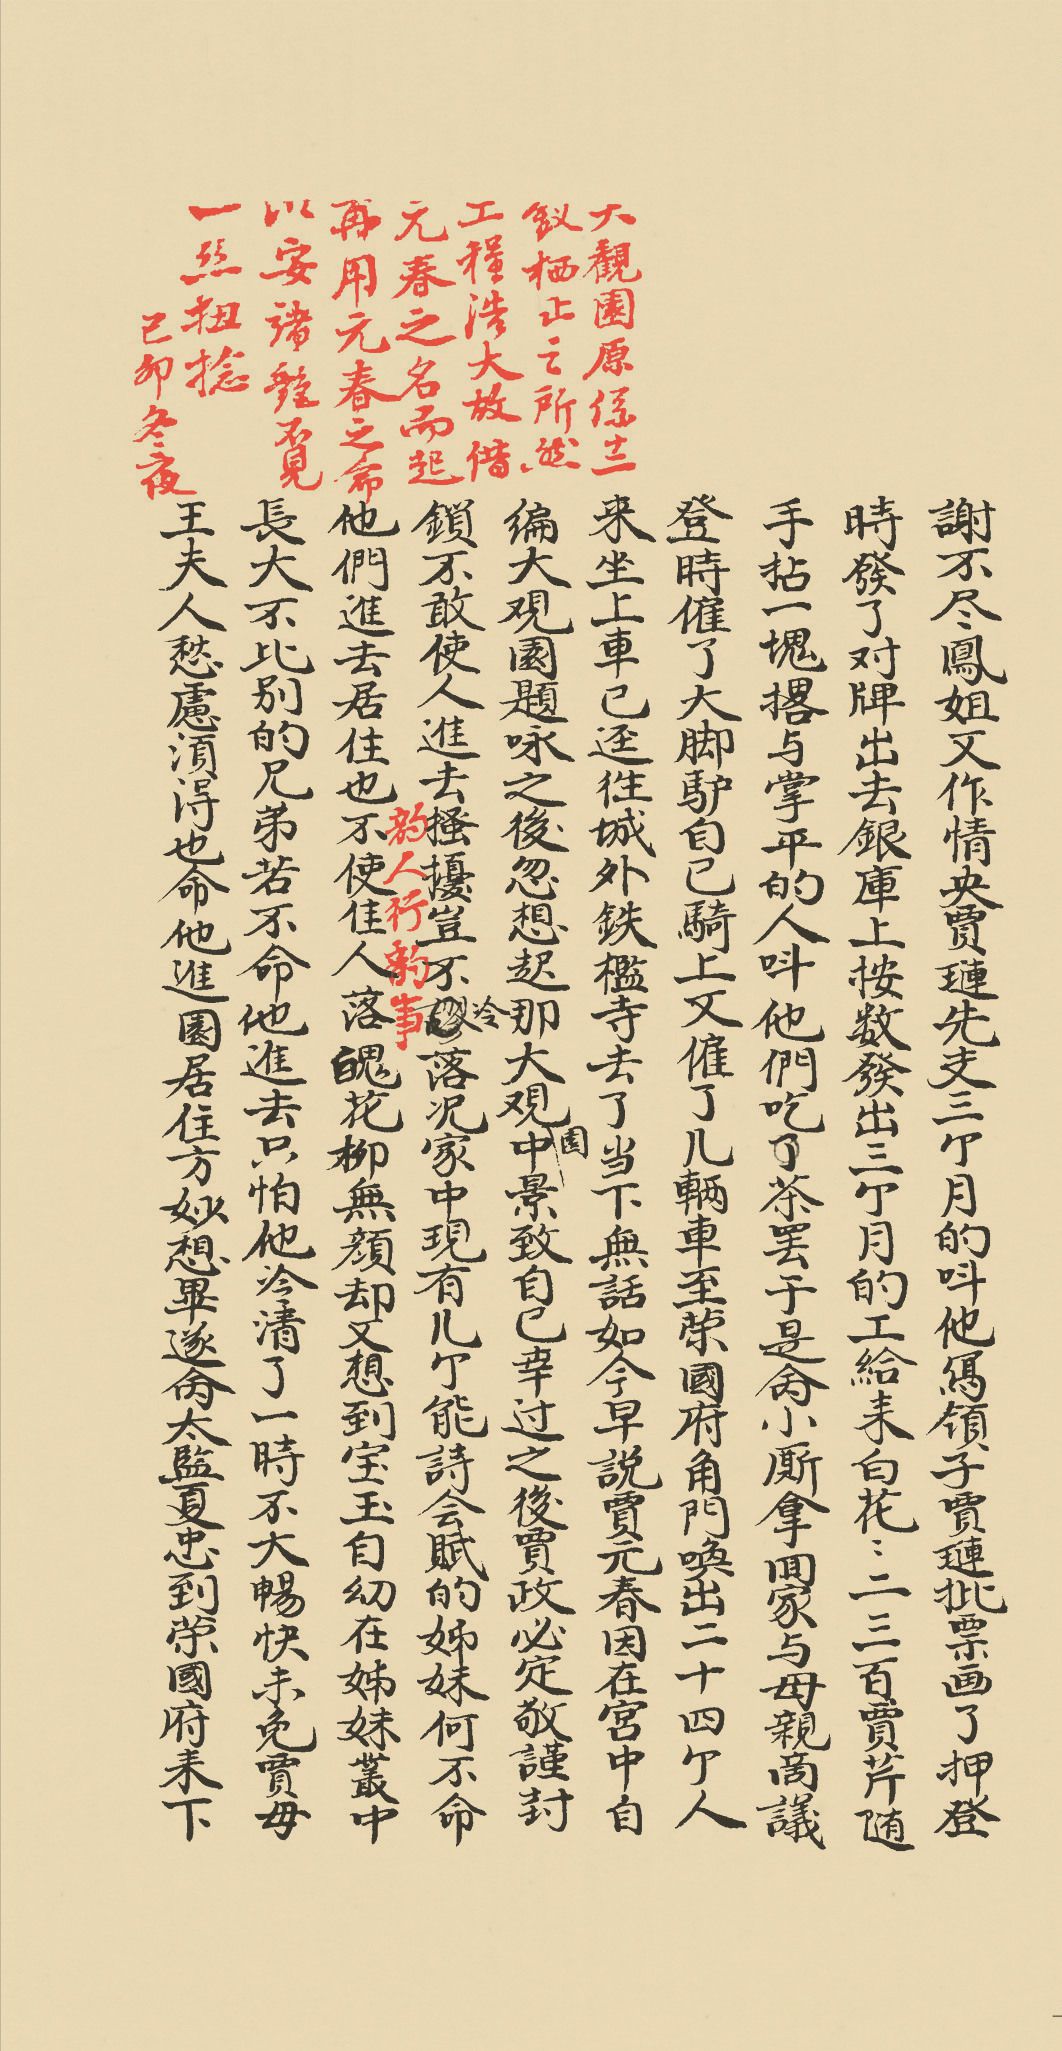 大觀園原係十二
釵栖止之所然
工程浩大故借
元春之名而起
再用元春之命
以安諸艶不見
一絲扭捻
己卯冬夜
謝不尽鳳姐又作情央賈璉先支三个月的呌他寫領子賈璉批票画了押登
時發了对牌出去銀庫上按数發出三个月的工給来白花〻二三百賈芹随
手拈一塊撂与掌平的人呌他們吃了茶罢于是命小厮拿回家与母親商議
登時僱了大脚馿自己騎上又僱了几輌車至荣國府角門喚出二十四个人
来坐上車已迳徃城外鉄檻寺去了当下無話如今早説賈元春因在宮中自
编大观園題咏之後忽想起那大观園中景致自己幸过之後賈政必定敬謹封
鎖不敢使人進去搔擾豈不冷落况家中現有几个能詩会賦的姊妹何不命
韵人行韵事
他們進去居住也不使佳人落魄花柳無顔却又想到宝玉自幼在姊妹叢中
長大不比别的兄弟若不命他進去只怕他冷清了一時不大暢快未免賈母
王夫人愁慮湏得也命他進園居住方妙想畢遂命太監夏忠到荣國府来下